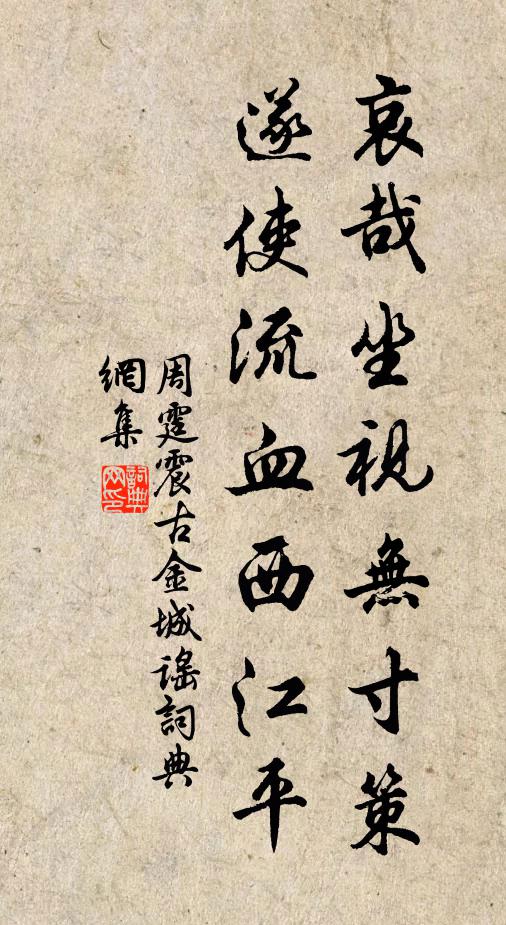 哀哉坐視無寸策
遂使流血西江平
周霆震古金城謠詞典
網集
詞典
网印